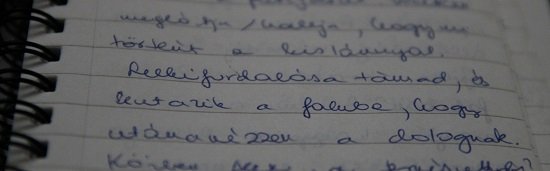 meglátja/hallja, hogy mi
történt a kislánnyal.
Lelkifurdalása támad, és
leutazik a faluba, hogy
utánanézzen a dolognak.